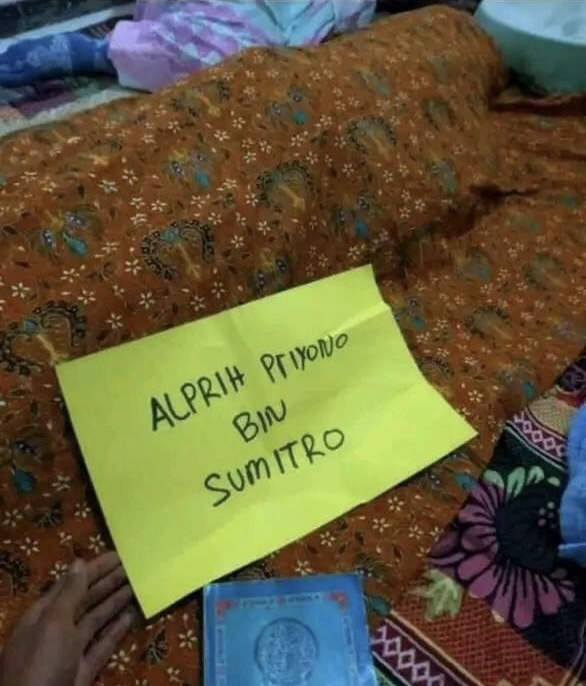 ALPRIH PriyoNo
BIN
SUMITRO